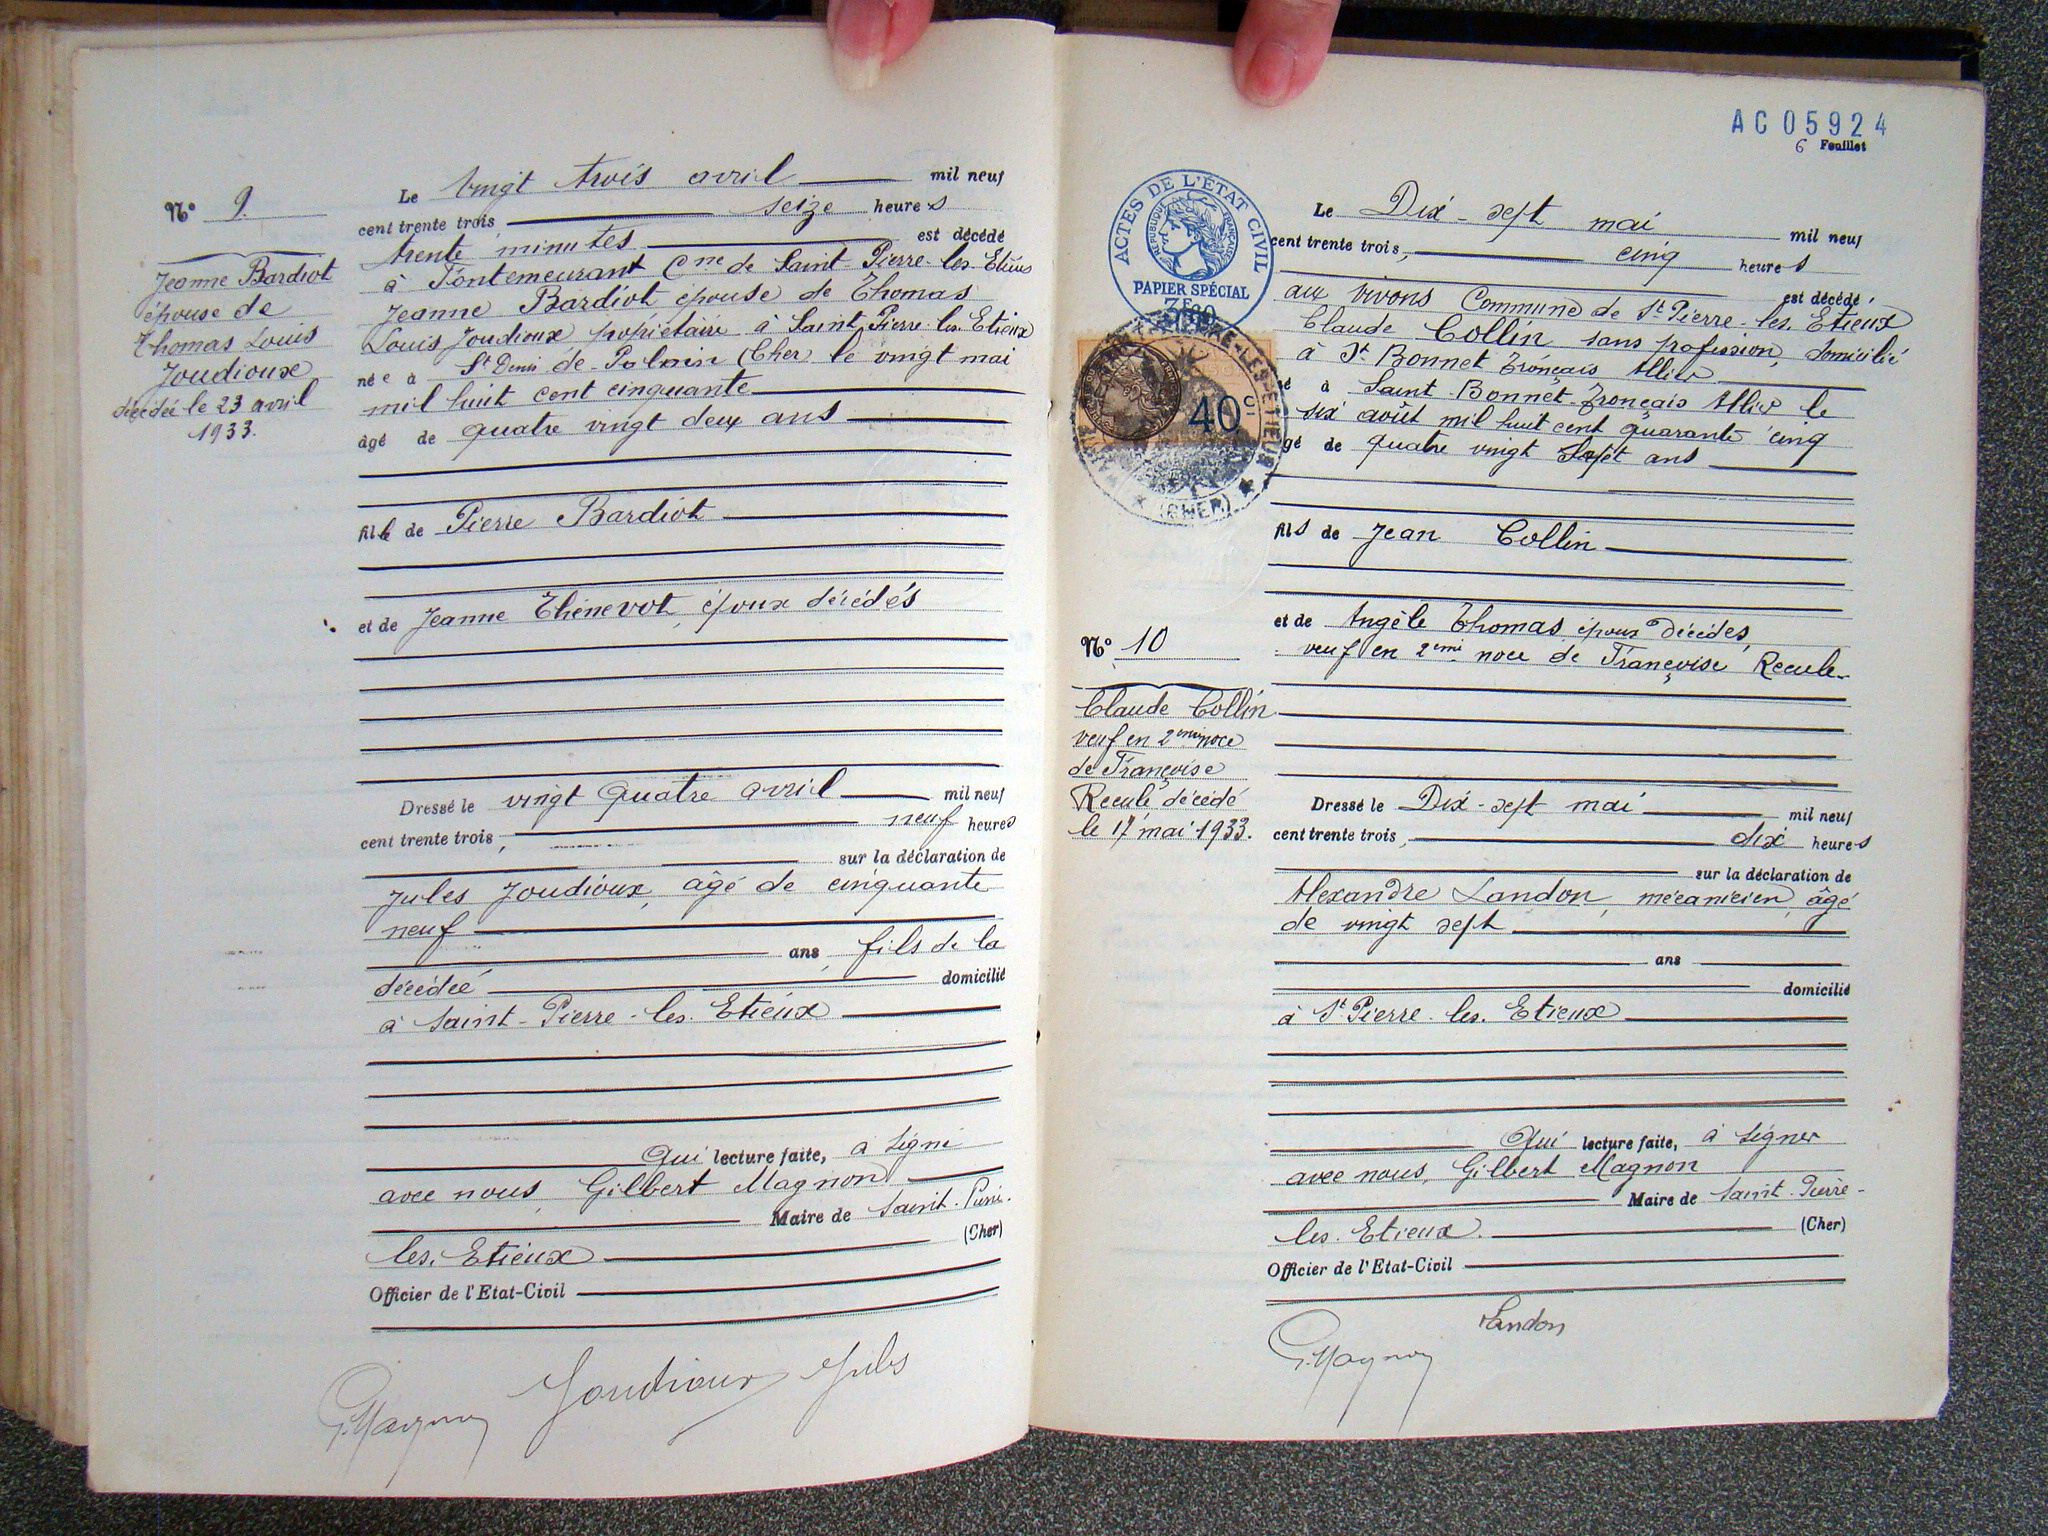 Nº 9.
Jeanne Bardiot
épouse de
Thomas Louis
Joudioux
décédée le 23 avril
1933.
Le vingt trois avril mil neuf
cent trente trois, seize heures
trente minutes est décédé
à Fontemeurant Cne de Saint-Pierre-les-Etieux
Jeanne Bardiot épouse de Thomas
Louis Joudioux propriétaire à Saint Pierre-les-Etieux
née à St Denis de Palain (Cher) le vingt mai
mil huit cent cinquante
âgé de quatre vingt deux ans
fille de Pierre Bardiot
et de Jeanne Thénevot, époux décédés
Dressé le vingt quatre avril mil neuf
cent trente trois, neuf heures
sur la déclaration de
Jules Joudioux, âgé de cinquante
neuf
ans, fils de la
décédée domicilié
à Saint-Pierre-les-Etieux
Qui lecture faite, a signé
avec nous, Gilbert Magnon
Maire de Saint-Pierre-
les-Etieux (Cher)
Officier de l'Etat-Civil
G. Magnon Joudioux Jules
AC 05924
6 Feuillet
ACTES DE L'ÉTAT CIVIL
RÉPUBLIQUE FRANÇAISE
PAPIER SPÉCIAL
40c
(CHER)
Nº 10
Claude Collin
veuf en 2eme noce
de Françoise
Recule, décédé
le 17 mai 1933.
Le Dix-sept mai mil neuf
cent trente trois, cinq heures
est décédé
aux vivons Commune de St Pierre-les-Etieux
Claude Collin sans profession, domicilié
à St Bonnet Tronçais Allier
né à Saint-Bonnet-Tronçais Allier le
six août mil huit cent quarante cinq
gé de quatre vingt Sept ans
fils de Jean Collin
et de Angèle Thomas époux Décédés,
veuf en 2eme noce de Françoise Recule
Dressé le Dix-sept mai mil neuf
cent trente trois, dix heures
sur la déclaration de
Alexandre Landon, mécanicien, âgé
de vingt sept
ans
domicilié
à St Pierre-les-Etieux
Qui lecture faite, à signer
avec nous, Gilbert Magnon
Maire de Saint-Pierre-
les-Etieux. (Cher)
Officier de l'Etat-Civil
Landon
G. Magnon